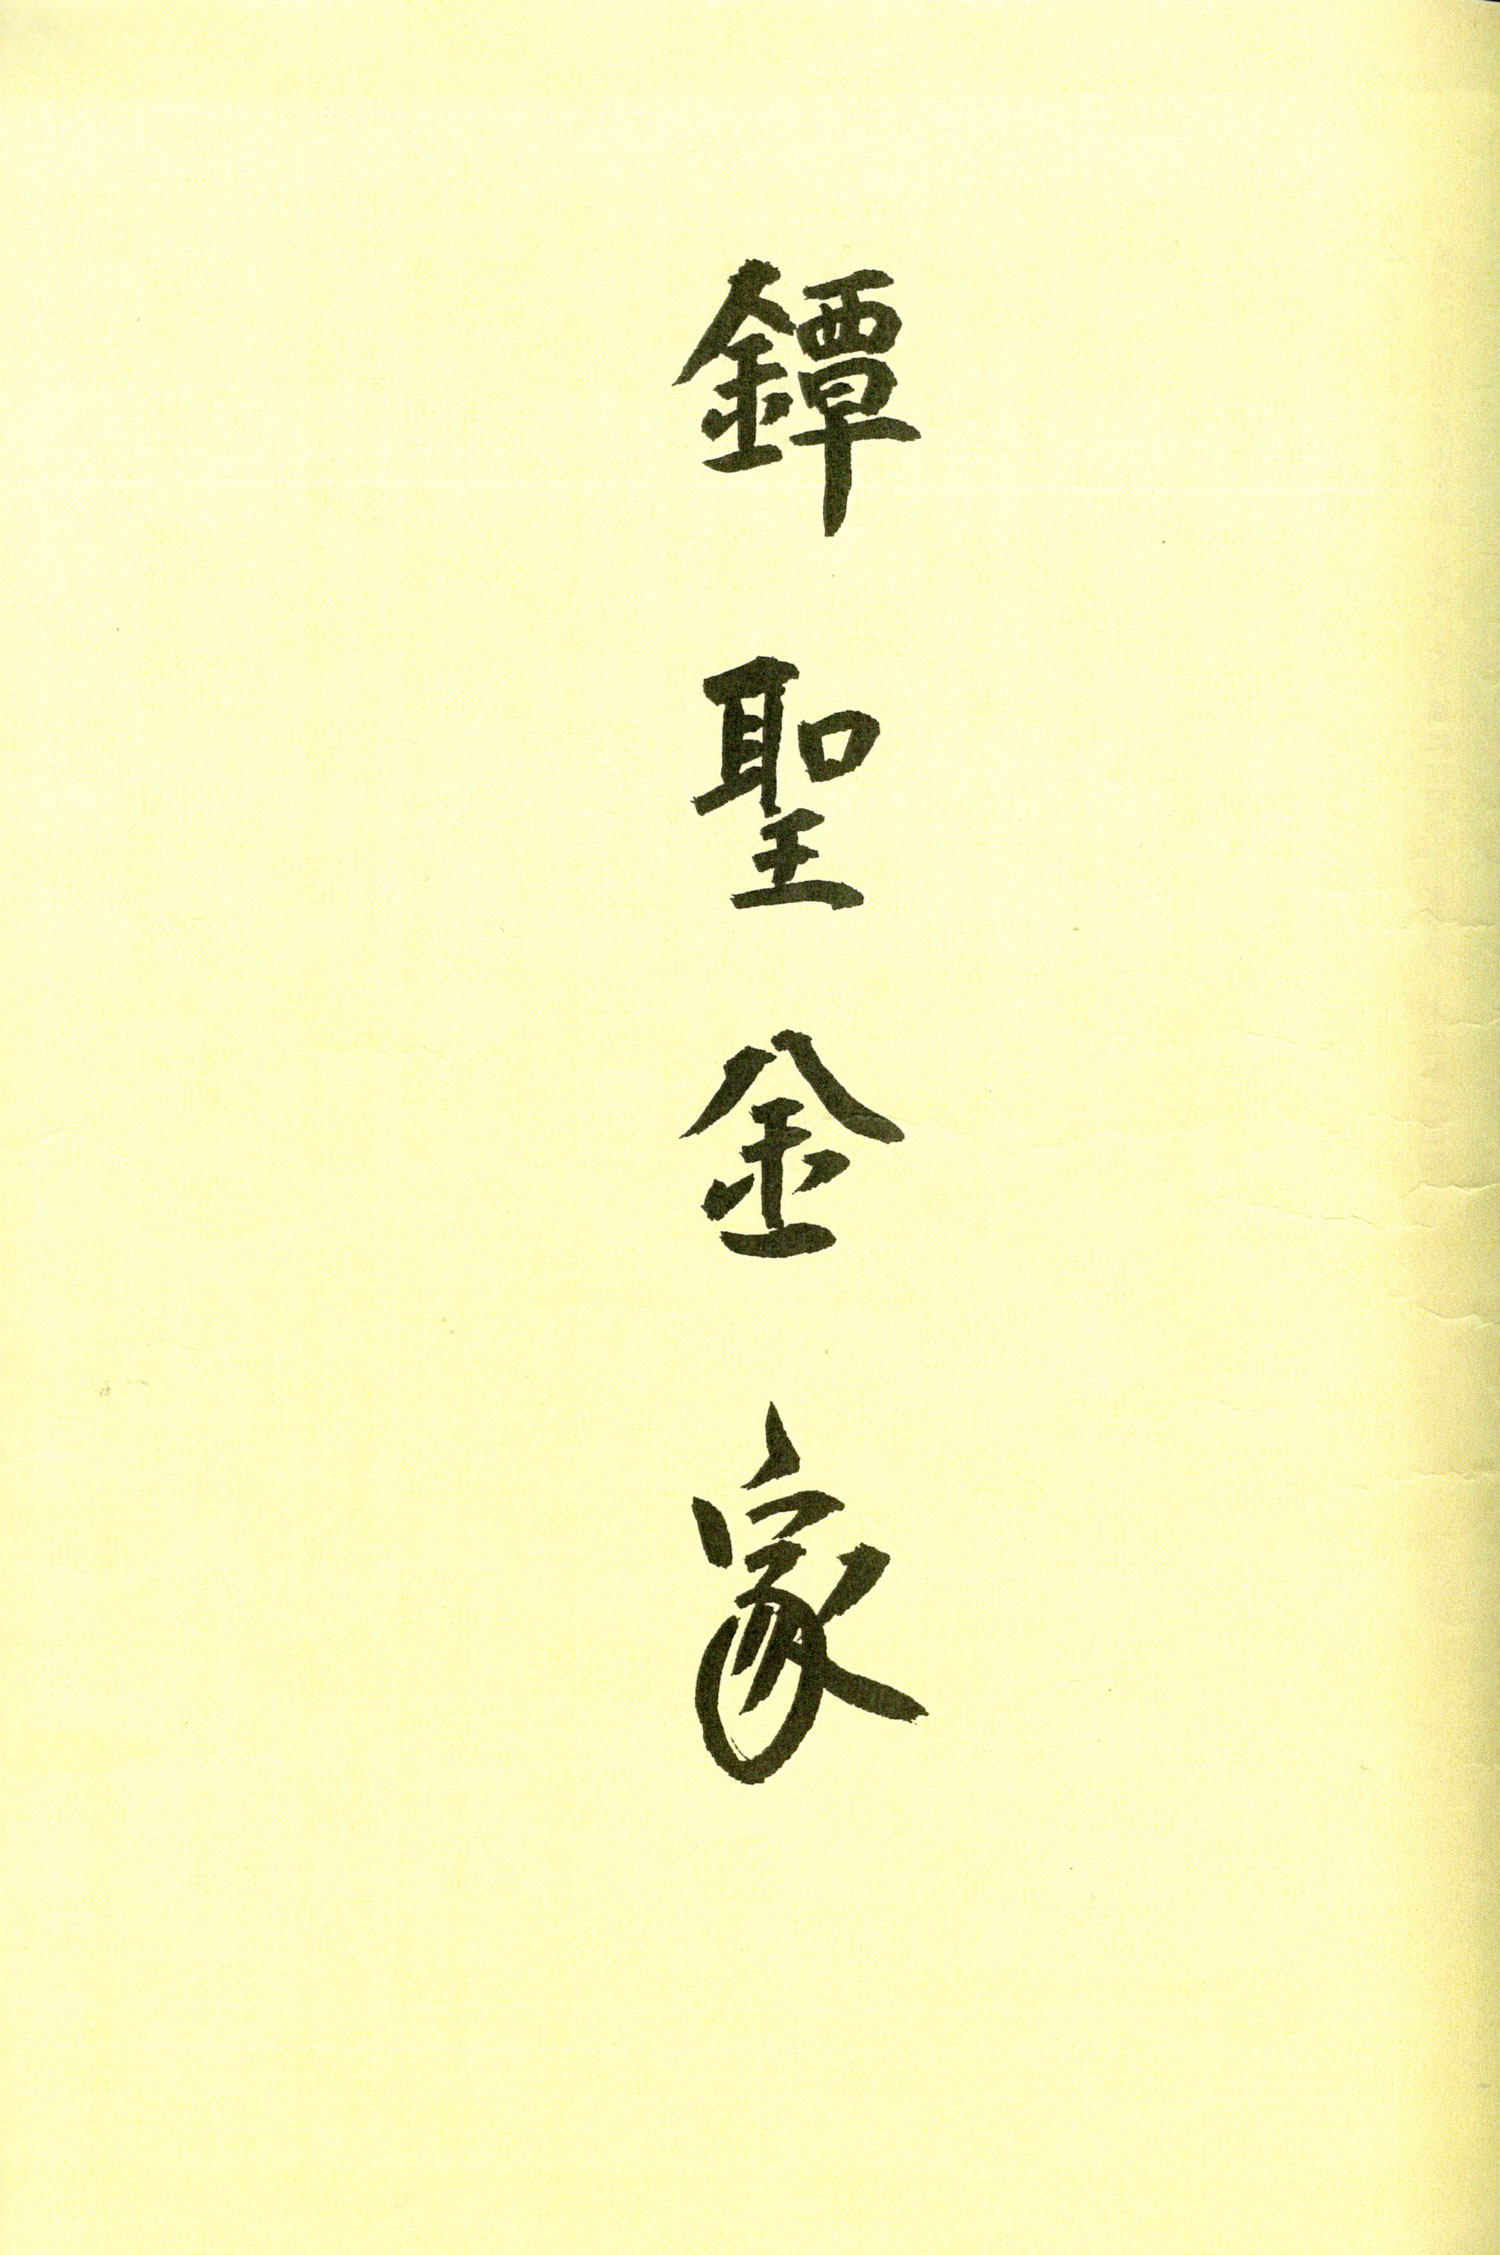 鐔聖金家